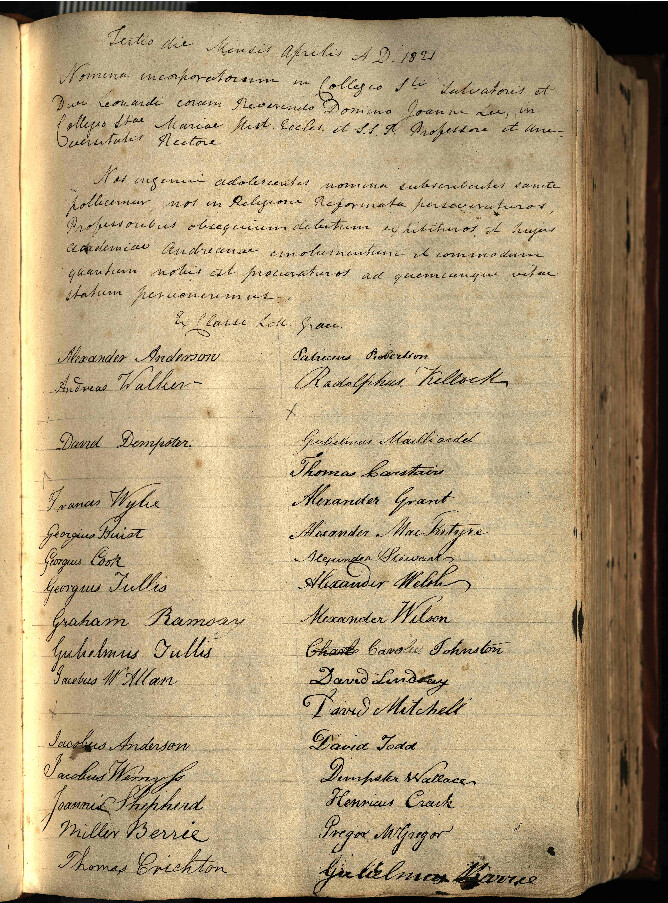 Tertio die Mensis Aprilis A.D. 1821
Nomina incorporatorum in Collegio Sti Salvatoris et
Divi Leonardi coram Reverendo Domino Joanne Lee, in
Collegio Stae Mariae Hist. Eccles. et S.S. P. Professore et Uni-
versitatis Rectore
Nos ingenui adolescentes nomina subscribentes sancte
pollicemur nos in Religione Reformata perseveraturos,
Professoribus obsequium debitum exhibituros et hujus
academiae Andreanae emolumentum et commodum
quantum nobis est procuraturos ad quemcunque vitae
statum pervenerimus.
Ex Classe Litt. Graec.
Alexander Anderson
Andreas Walker
David Dempster.
Francis Wylie
Georgius Buist
Georgius Cook
Georgius Tullis
Graham Ramsay
Gulielmus Tullis
Jacobus W. Allan
Jacobus Anderson
Jacobus Wemyss
Joannis Shepherd
Miller Berrie
Thomas Crichton
Patricius Robertson
Radolphus Kellock
x
Gulielmus Mailliardet
Thomas Carstairs
Alexander Grant
Alexander MacIntyre
Alexander Stewart
Alexander Welsh
Alexander Wilson
Carolus Johnston
David Lindsay
David Mitchell
David Todd
Dempster Wallace
Henricus Craik
Gregor McGregor
Gulielmus